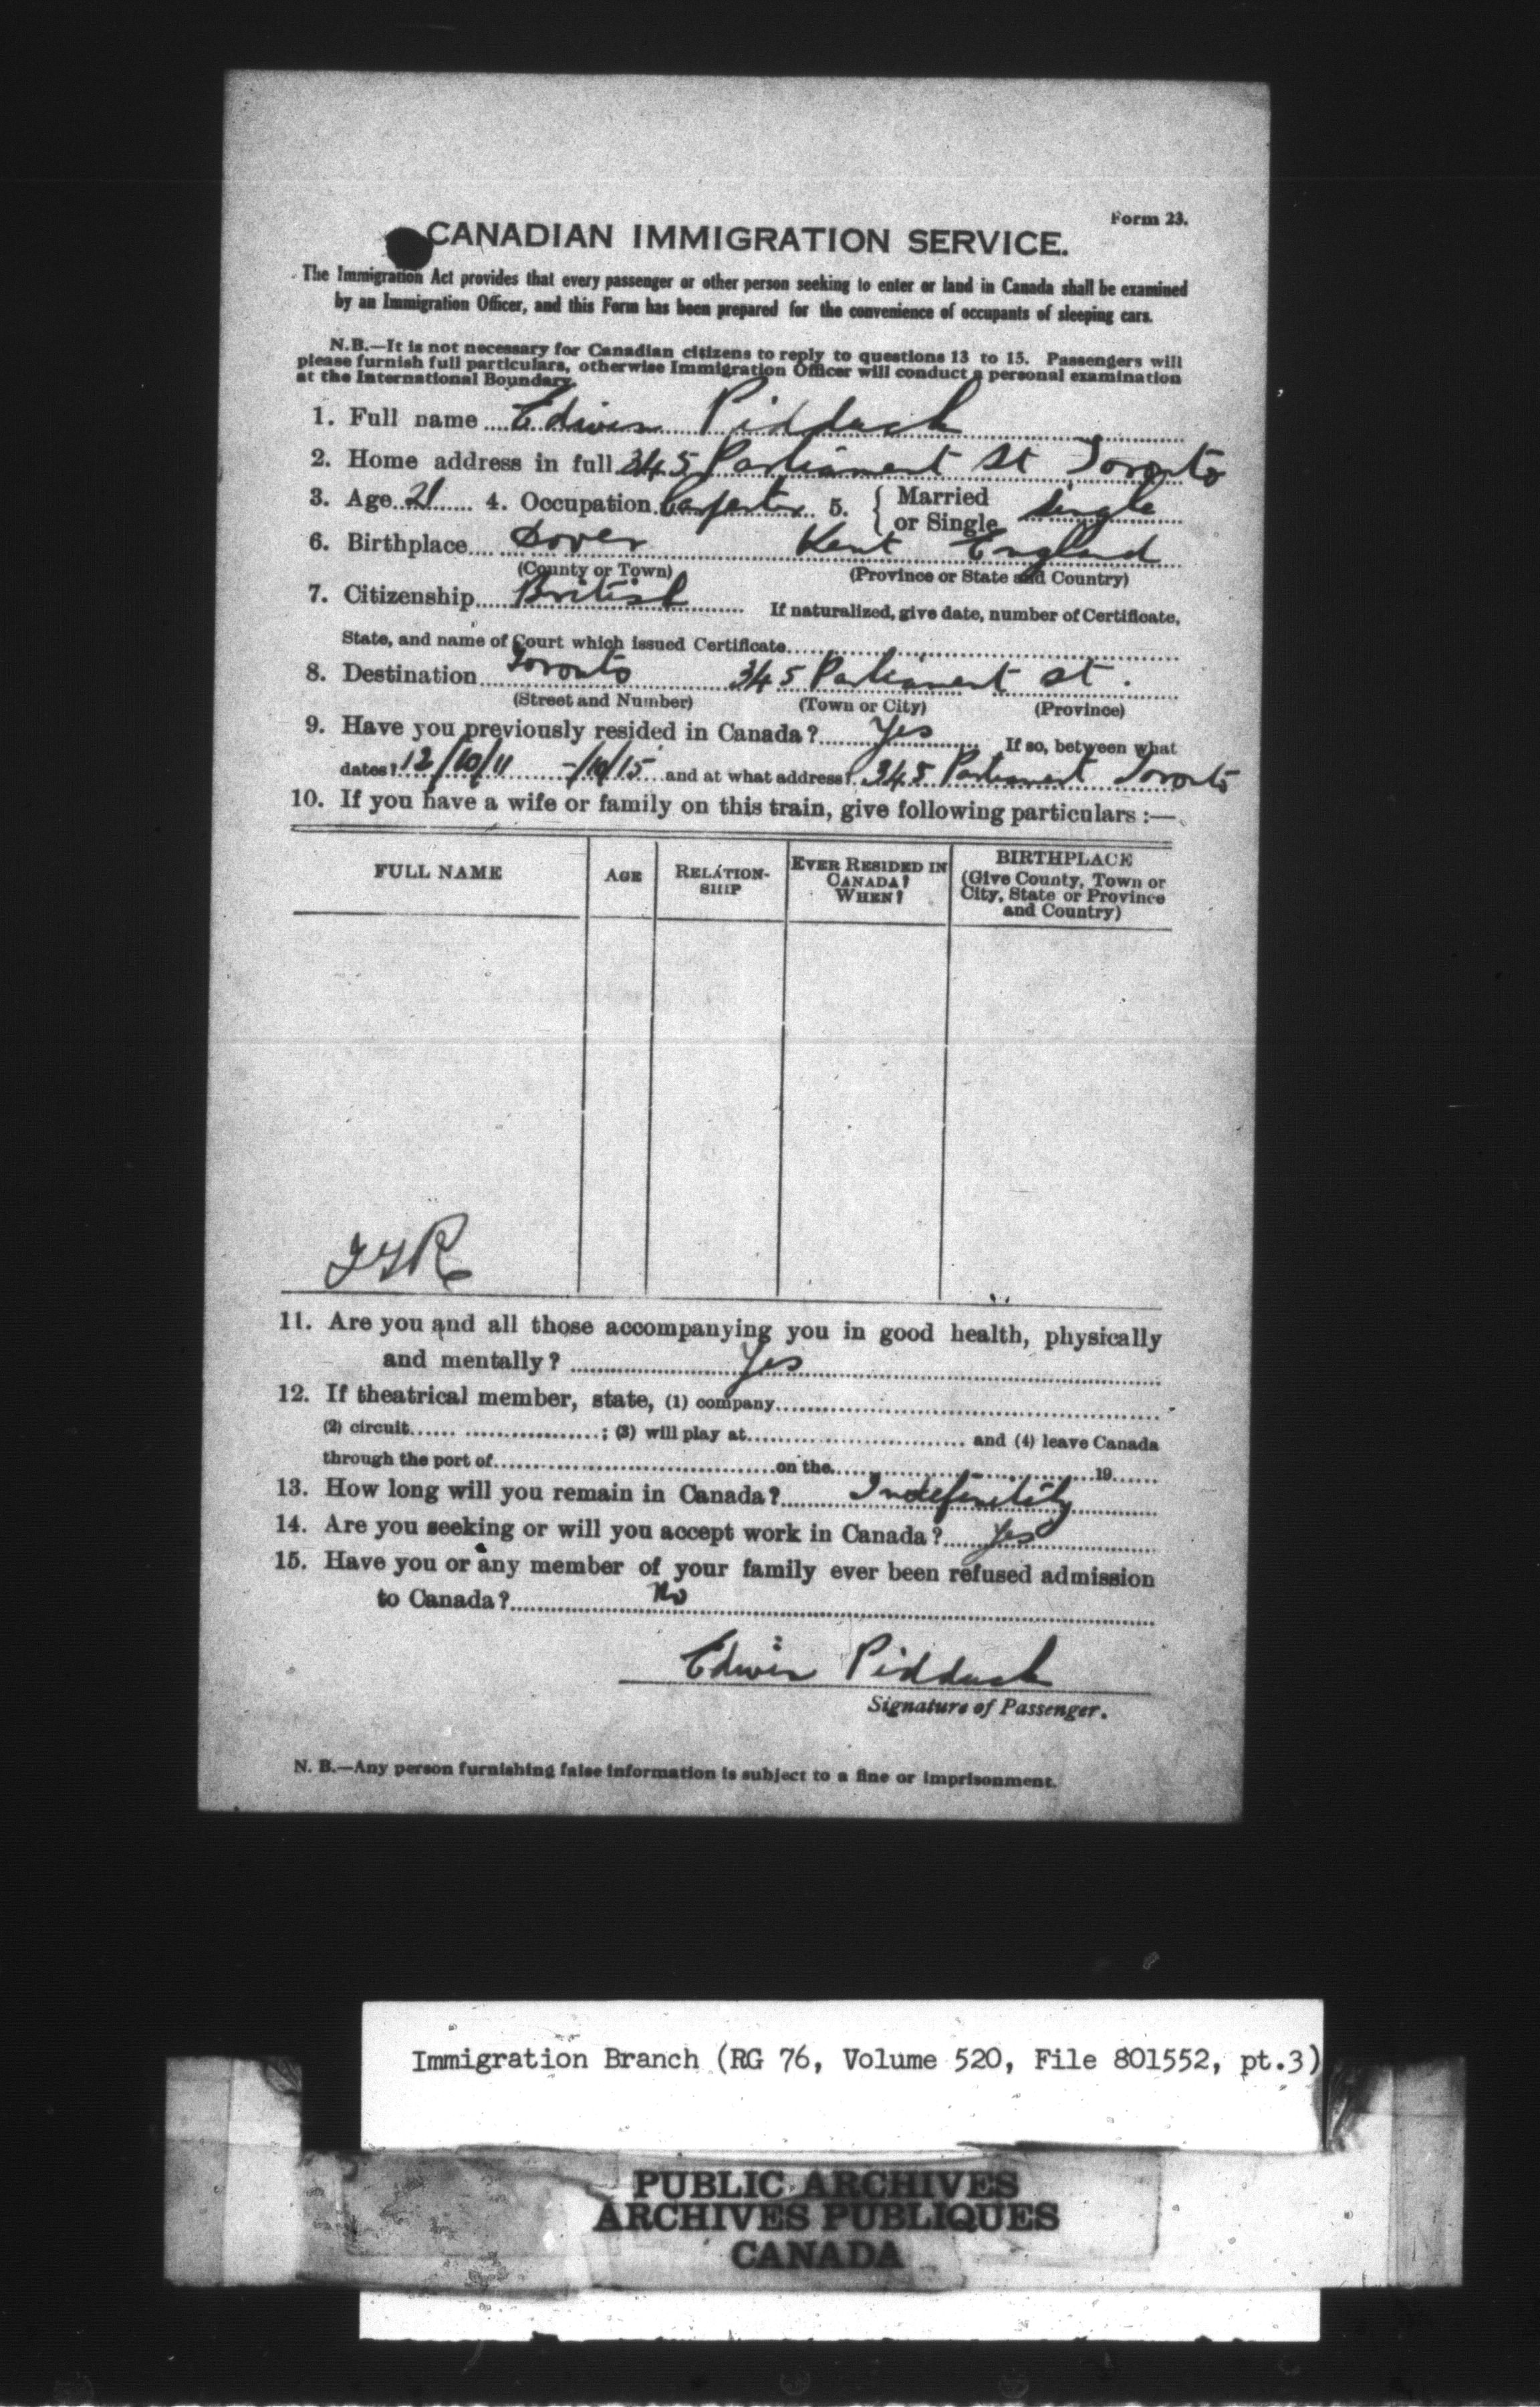 Form 23.
CANADIAN IMMIGRATION SERVICE.
The Immigration Act provides that every passenger or other person seeking to enter or land in Canada shall be examined
by an Immigration Officer, and this Form has been prepared for the convenience of occupants of sleeping cars.
N.B.—It is not necessary for Canadian citizens to reply to questions 13 to 15. Passengers will
please furnish full particulars, otherwise Immigration Officer will conduct a personal examination
at the International Boundary.
1. Full name Edwin Pidduck
2. Home address in full 345 Parliament St Toronto
3. Age 21 4. Occupation Carpenter 5. { Married
or Single single
6. Birthplace Dover Kent England
(County or Town) (Province or State and Country)
7. Citizenship British If naturalized, give date, number of Certificate,
State, and name of Court which issued Certificate
8. Destination Toronto 345 Parliament St.
(Street and Number) (Town or City) (Province)
9. Have you previously resided in Canada? Yes If so, between what
dates? 12/10/11 - /10/15 and at what address? 345 Parliament Toronto
10. If you have a wife or family on this train, give following particulars :—
FULL NAME AGE RELATION-SHIP EVER RESIDED IN CANADA? WHEN? BIRTHPLACE (Give County, Town or City, State or Province and Country)
11. Are you and all those accompanying you in good health, physically
and mentally? Yes
12. If theatrical member, state, (1) company
(2) circuit ; (3) will play at and (4) leave Canada
through the port of on the 19
13. How long will you remain in Canada? Indefinitily
14. Are you seeking or will you accept work in Canada? Yes
15. Have you or any member of your family ever been refused admission
to Canada? No
Edwin Pidduck
Signature of Passenger.
N. B.—Any person furnishing false information is subject to a fine or imprisonment.
Immigration Branch (RG 76, Volume 520, File 801552, pt.3)
PUBLIC ARCHIVES
ARCHIVES PUBLIQUES
CANADA